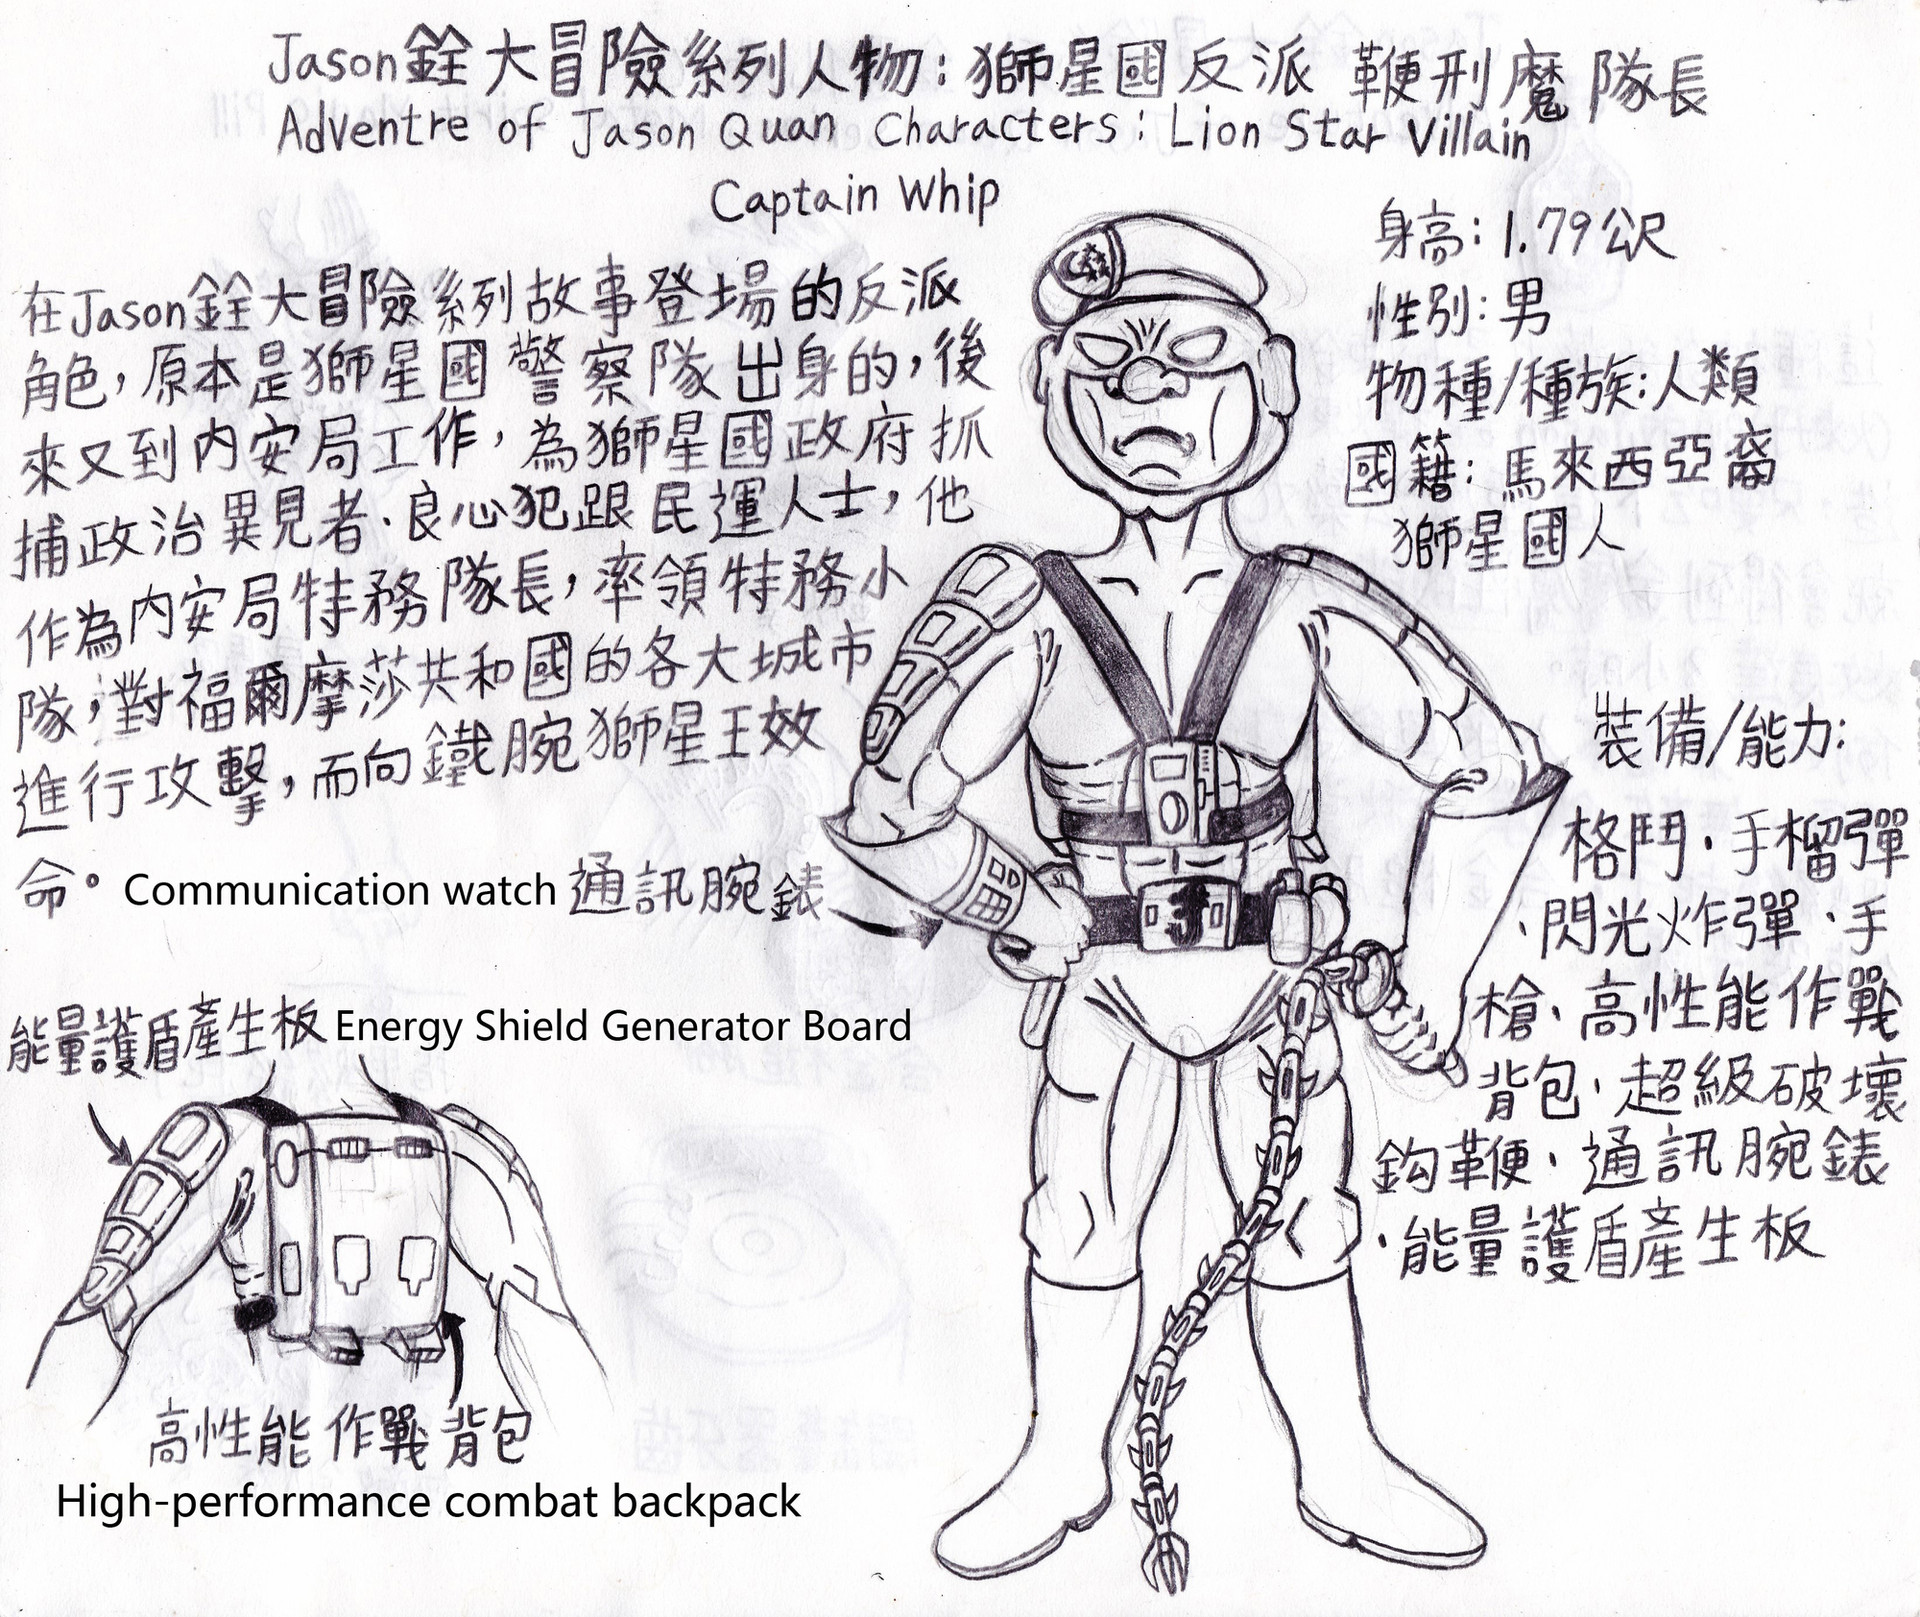 Jason銓大冒險系列人物:獅星國反派 鞭刑魔隊長
Adventre of Jason Quan Characters: Lion Star Villain
Captain Whip
在Jason銓大冒險系列故事登場的反派
角色,原本是獅星國警察隊出身的,後
來又到內安局工作,為獅星國政府抓
捕政治異見者·良心犯跟民運人士,他
作為內安局特務隊長,率領特務小
隊,對福爾摩莎共和國的各大城市
進行攻擊,而向鐵腕獅星王效
命。
Communication watch 通訊腕錶
能量護盾產生板 Energy Shield Generator Board
高性能作戰背包
High-performance combat backpack
身高:1.79公尺
性別:男
物種/種族:人類
國籍:馬來西亞裔
獅星國人
裝備/能力:
格鬥·手榴彈
·閃光炸彈·手
槍·高性能作戰
背包·超級破壞
鈎鞭·通訊腕錶
·能量護盾產生板